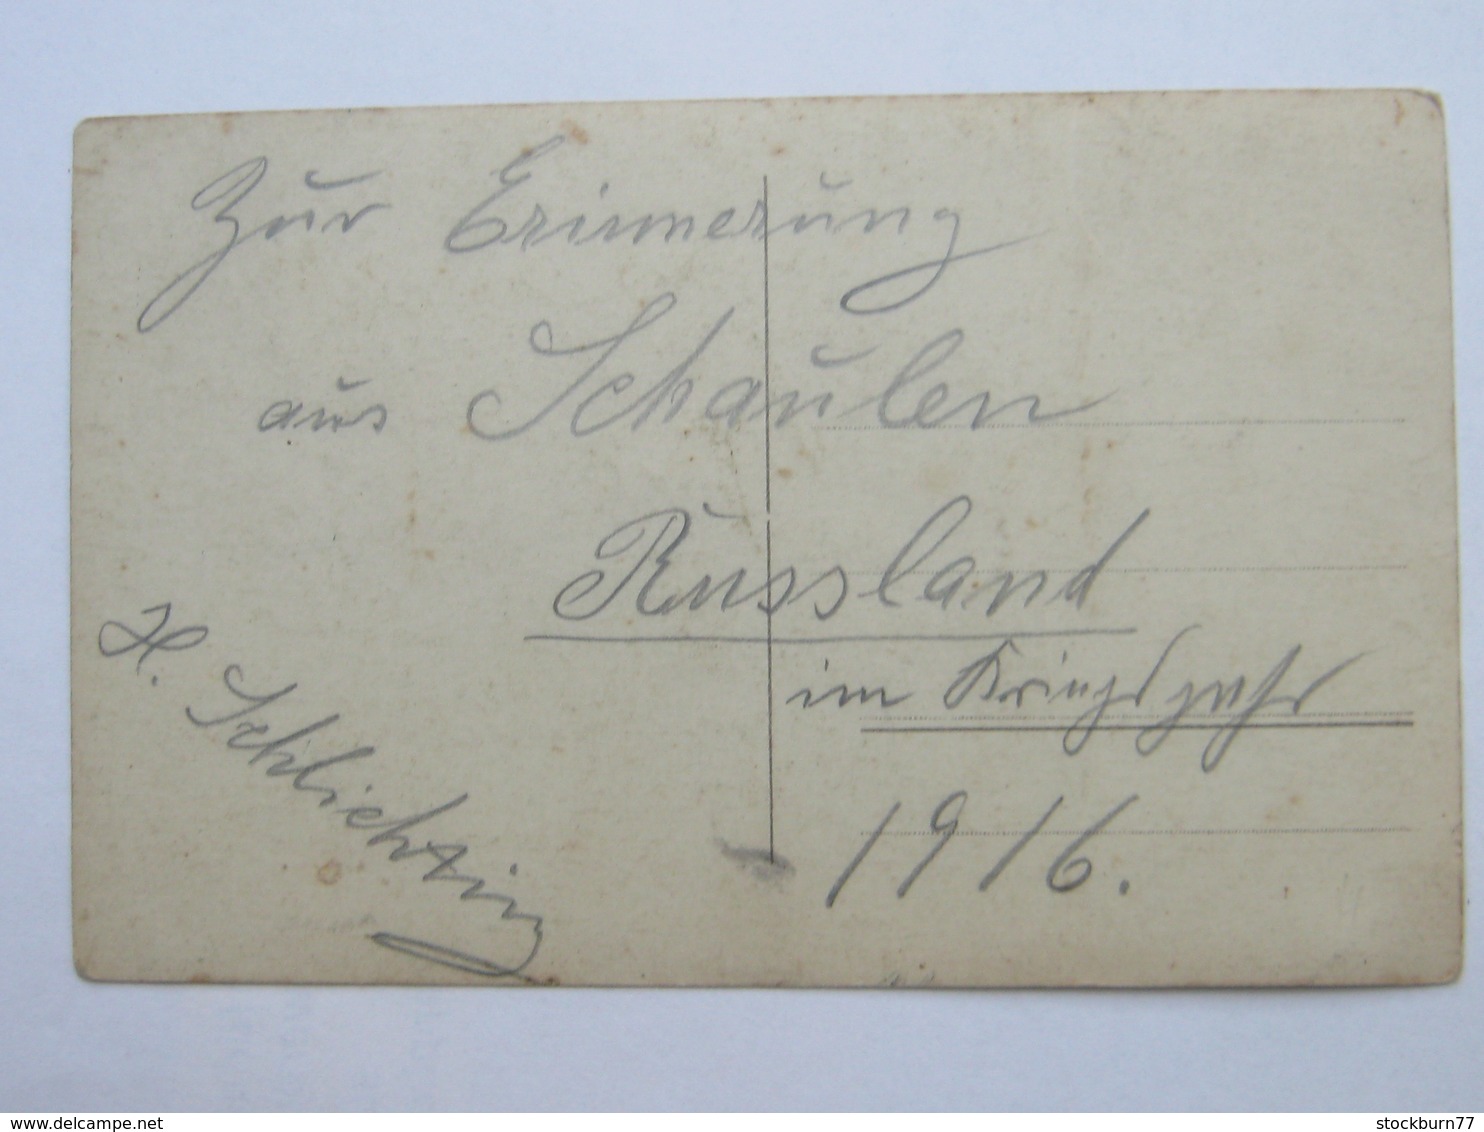 Zur Erinnerung
aus Schaulen
Russland
im Kriegsjahr
1916.
H. Schlichting
delcampe.net
stockburn77